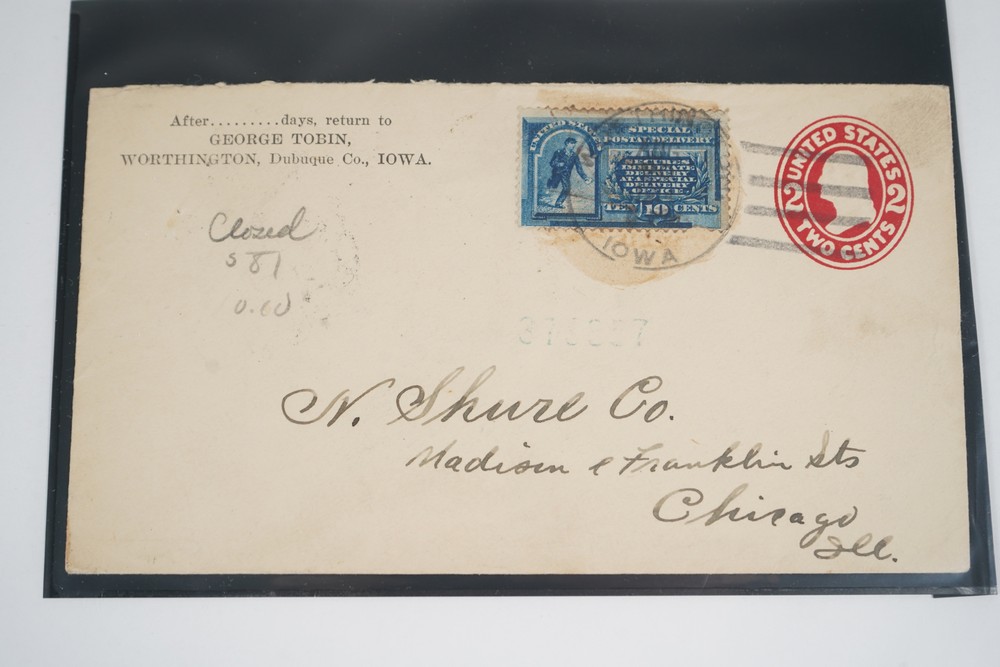 After.........days, return to
GEORGE TOBIN,
WORTHINGTON, Dubuque Co., IOWA.
UNITED STATES
SPECIAL
POSTAL DELIVERY
SECURES
IMMEDIATE
DELIVERY
AT A SPECIAL
DELIVERY
OFFICE
TEN 10 CENTS
IOWA
UNITED STATES
2 2
TWO CENTS
Closed
N. Shure Co.
Madison & Franklin Sts
Chicago
Ill.